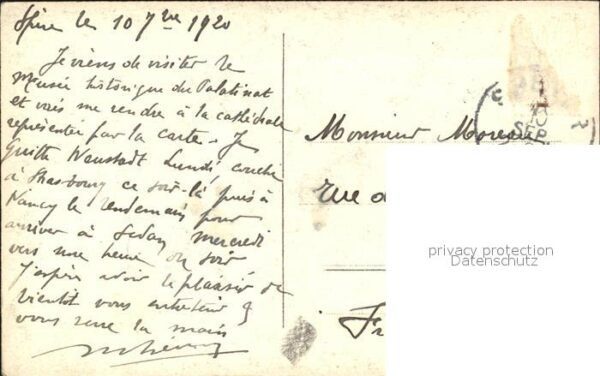 Spire le 10 7bre 1920
Je viens de visiter le
Musée historique du Palatinat
et vais me rendre à la cathédrale
représentée par la carte. Je
quitte Neustadt Lundi, couche
à Strasbourg ce soir-là puis à
Nancy le lendemain pour
arriver à Sedan mercredi
vers une heure du soir
J'espère avoir le plaisir de
bientôt vous entretenir &
vous serre la main
Monsieur Moreau
rue d
Fr
privacy protection
Datenschutz